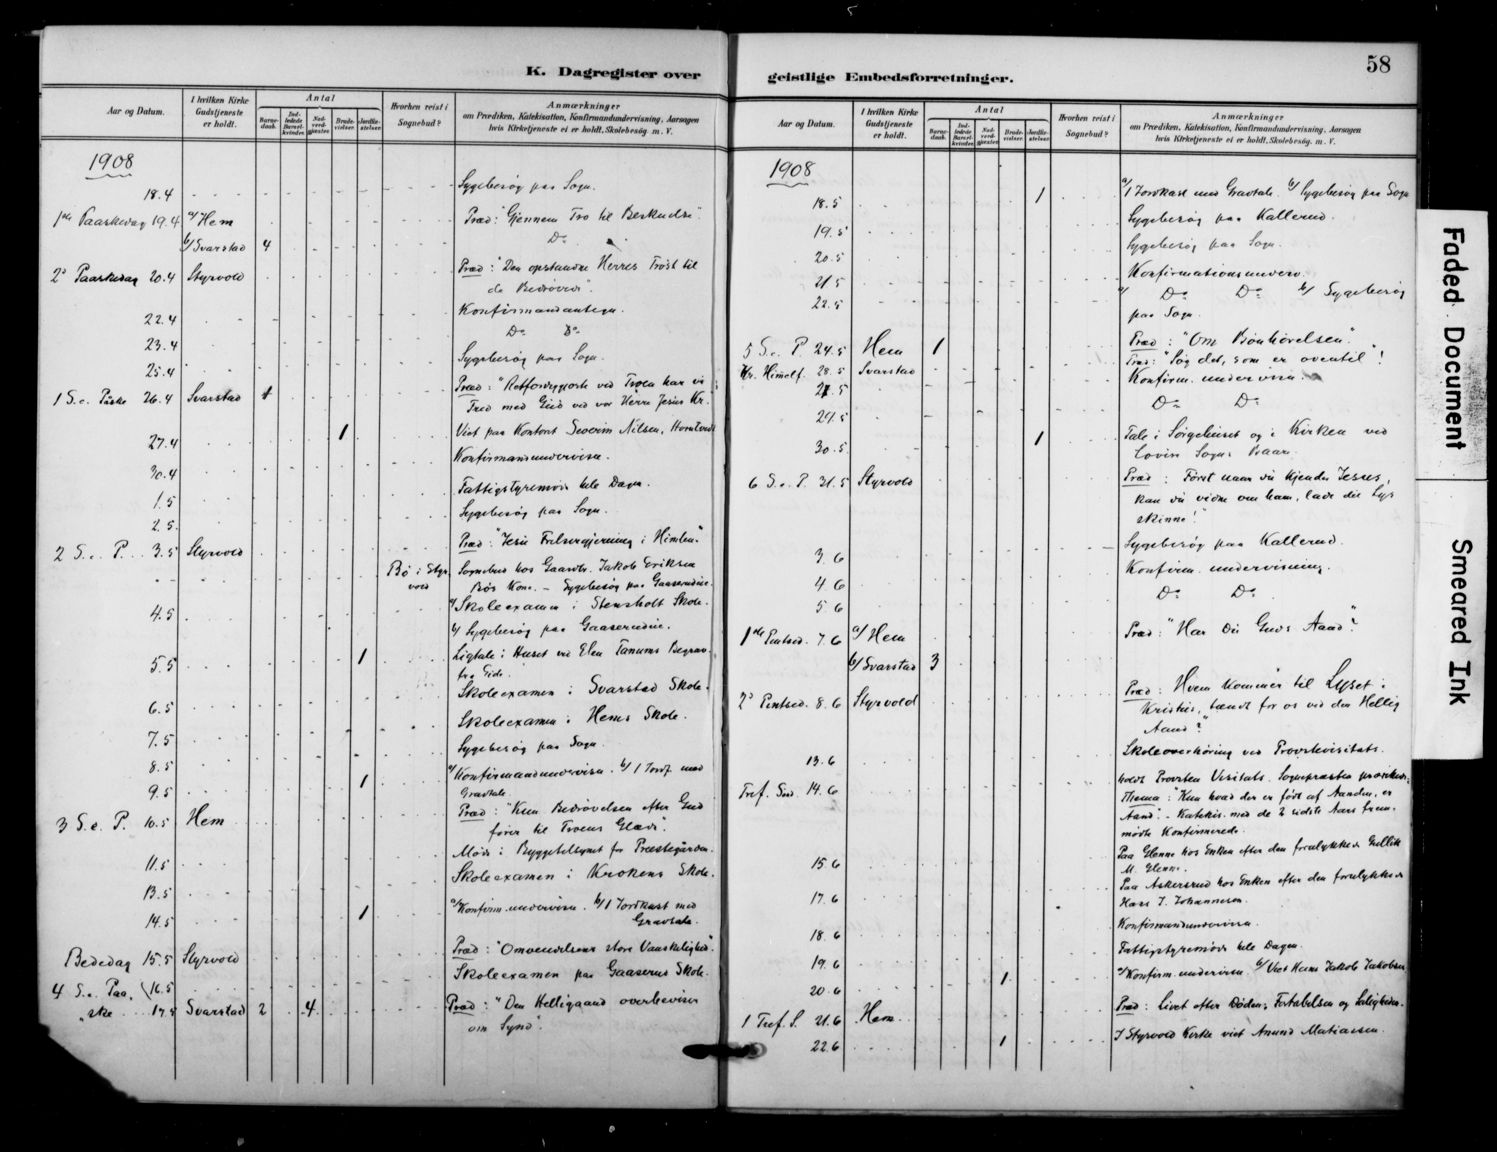 K. Dagregister over
Aar og Datum. I hvilken Kirke Gudstjeneste er holdt. Antal Barnedaab. Indledede Barselkvinder. Nadverdgjæster. Brudevielser. Jordfæstelser. Hvorhen reist i Sognebud? Anmærkninger om Prædiken, Katekisation, Konfirmandundervisning, Aarsagen hvis Kirketjeneste ei er holdt, Skolebesøg m. V.
1908
18.4 Sygebesøg paa Sogn.
1ste Paaskedag 19.4 a/ Hem Præd: "Gjennem Tro til Beskuelse".
b/ Svarstad 4 Do
2den Paaskedag 20.4 Styrvold Præd: "Den opstandne Herres Trøst til
de Bedrøvede".
22.4 Konfirmandantegn.
23.4 Do Do
25.4 Sygebesøg paa Sogn.
1 S. e. Påske 26.4 Svarstad 1 Præd: "Retfærdiggjorte ved Troen har vi
Fred med Gud ved vor Herre Jesus Kr."
27.4 1 Viet paa Kontoret Severin Nilsen,
30.4 Konfirmandundervisn.
1.5 Fattigstyremøde hele Dagen.
2.5. Sygebesøg paa Sogn.
2 S. e. P. 3.5 Styrvold Præd: "Jesu Frelsergjerning i Himlen."
Bø i Styrvold Sognebud hos Gaardb. Jakob Eriksen
Bøs Kone. – Sygebesøg paa Gaaserudeie.
4.5 a/ Skoleexamen i Stensholt Skole.
b/ Sygebesøg paa Gaaserudeie.
5.5 1 Ligtale i Huset ved Elen Tanums Begrav-
fra Eide.
6.5 Skoleexamen i Svarstad Skole.
7.5 Skoleexamen i Hems Skole.
8.5 Sygebesøg paa Sogn.
9.5 1 a/ Konfirmandundervisn. b/ 1 Jordf. med
Gravtale.
3 S. e. P. 10.5 Hem Præd: "Kun Bedrøvelsen efter Gud
fører til Troens Glæde".
11.5 Møde i Byggetilsynet for Præstegården.
13.5 Skoleexamen i Krokens Skole.
14.5 1 a/ Konfirm.undervisn. b/ 1 Jordkast med
Gravtale.
Bededag 15.5 Styrvold Præd: "Omvendelsens store Vanskelighed".
16.5 Skoleexamen paa Gaaserud Skole.
4 S. e. Paaske 17.5 Svarstad 2 4 Præd: "Den Helligaand overbeviser
om Synd".
geistlige Embedsforretninger.
58
Aar og Datum. I hvilken Kirke Gudstjeneste er holdt. Antal Barnedaab. Indledede Barselkvinder. Nadverdgjæster. Brudevielser. Jordfæstelser. Hvorhen reist i Sognebud? Anmærkninger om Prædiken, Katekisation, Konfirmandundervisning, Aarsagen hvis Kirketjeneste ei er holdt, Skolebesøg m. V.
1908
18.5 1 a/ 1 Jordkast med Gravtale. b/ Sygebesøg paa Sogn
19.5 Sygebesøg paa Kallerud.
20.5 Sygebesøg paa Sogn.
21.5 Konfirmationsunderv.
22.5 a/ Do Do b/ Sygebesøg
paa Sogn.
5 S. e. P. 24.5 Hem 1 Præd: "Om Bønhørelsen".
Kr. Himelf. 28.5 Svarstad Præd: "Søg det, som er oventil"!
27.5 Konfirm. undervisn.
29.5 Do Do
30.5 1 Tale i Sørgehuset og i Kirken ved
6 S. e. P. 31.5 Styrvold Præd: Først naar du kjender Jesus,
kan du vidne om ham, lade dit Lys
skinne!"
3.6 Sygebesøg paa Kallerud.
4.6 Konfirm. undervisning.
5.6 Do Do
1ste Pintsed. 7.6 a/ Hem Præd: "Har Du Guds Aand"?
b/ Svarstad 3
2den Pintsed. 8.6 Styrvold Præd: Hvem kommer til Lyset i
Kristus, tændt for os ved den Hellig
Aand?"
13.6 Skoleoverhøring ved Provstevisitats.
Tref. Sønd. 14.6 holdt Provsten Visitats. Sognepræsten prædikede.
Thema: "Kun hvad der er født af Aanden, er
Aand". – Katekis. med de 2 sidste Aars frem-
mødte Konfirmerede.
15.6 Paa Glenne hos Enken efter den forulykkede Gullik
M. Glenne.
17.6 Paa Askersrud hos Enken efter den forulykkede
Hans J. Johannesen.
18.6 Konfirmandundervisn.
19.6 Fattigstyremøde hele Dagen.
20.6 1 a/ Konfirm. undervisn. b/ Viet Hans Jakob Jakobsen
1 Tref. S. 21.6 Hem Præd: Livet efter Døden; Fortabelsen og Saligheden.
22.6 1 I Styrvold Kirke viet Anund Matiassen.
Faded Document
Smeared Ink